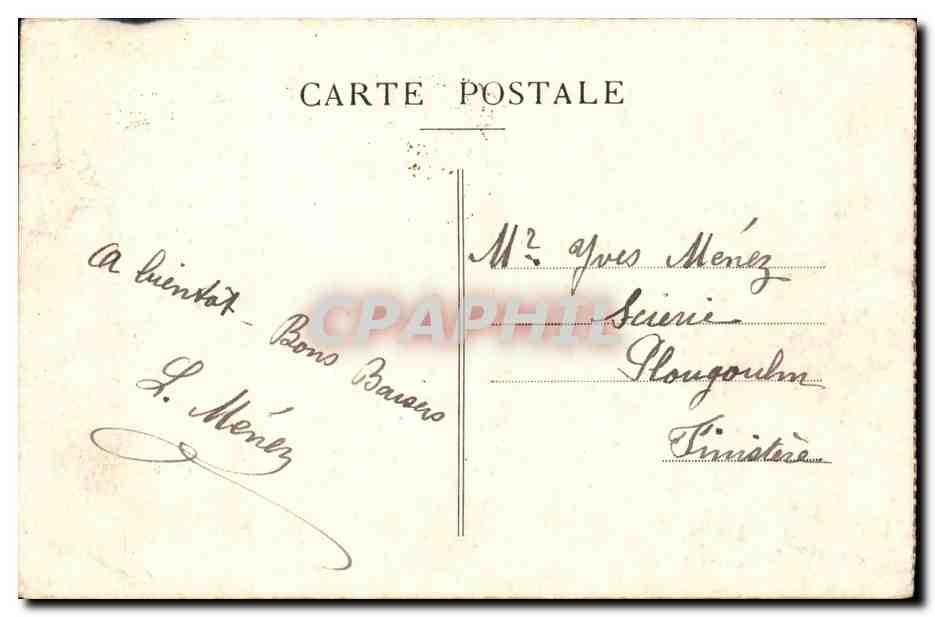 CARTE POSTALE
A bientôt - Bons Baisers
L. Ménez
Mr. Yves Ménez
Scierie
Plougoulm
Finistère
CPAPHIL